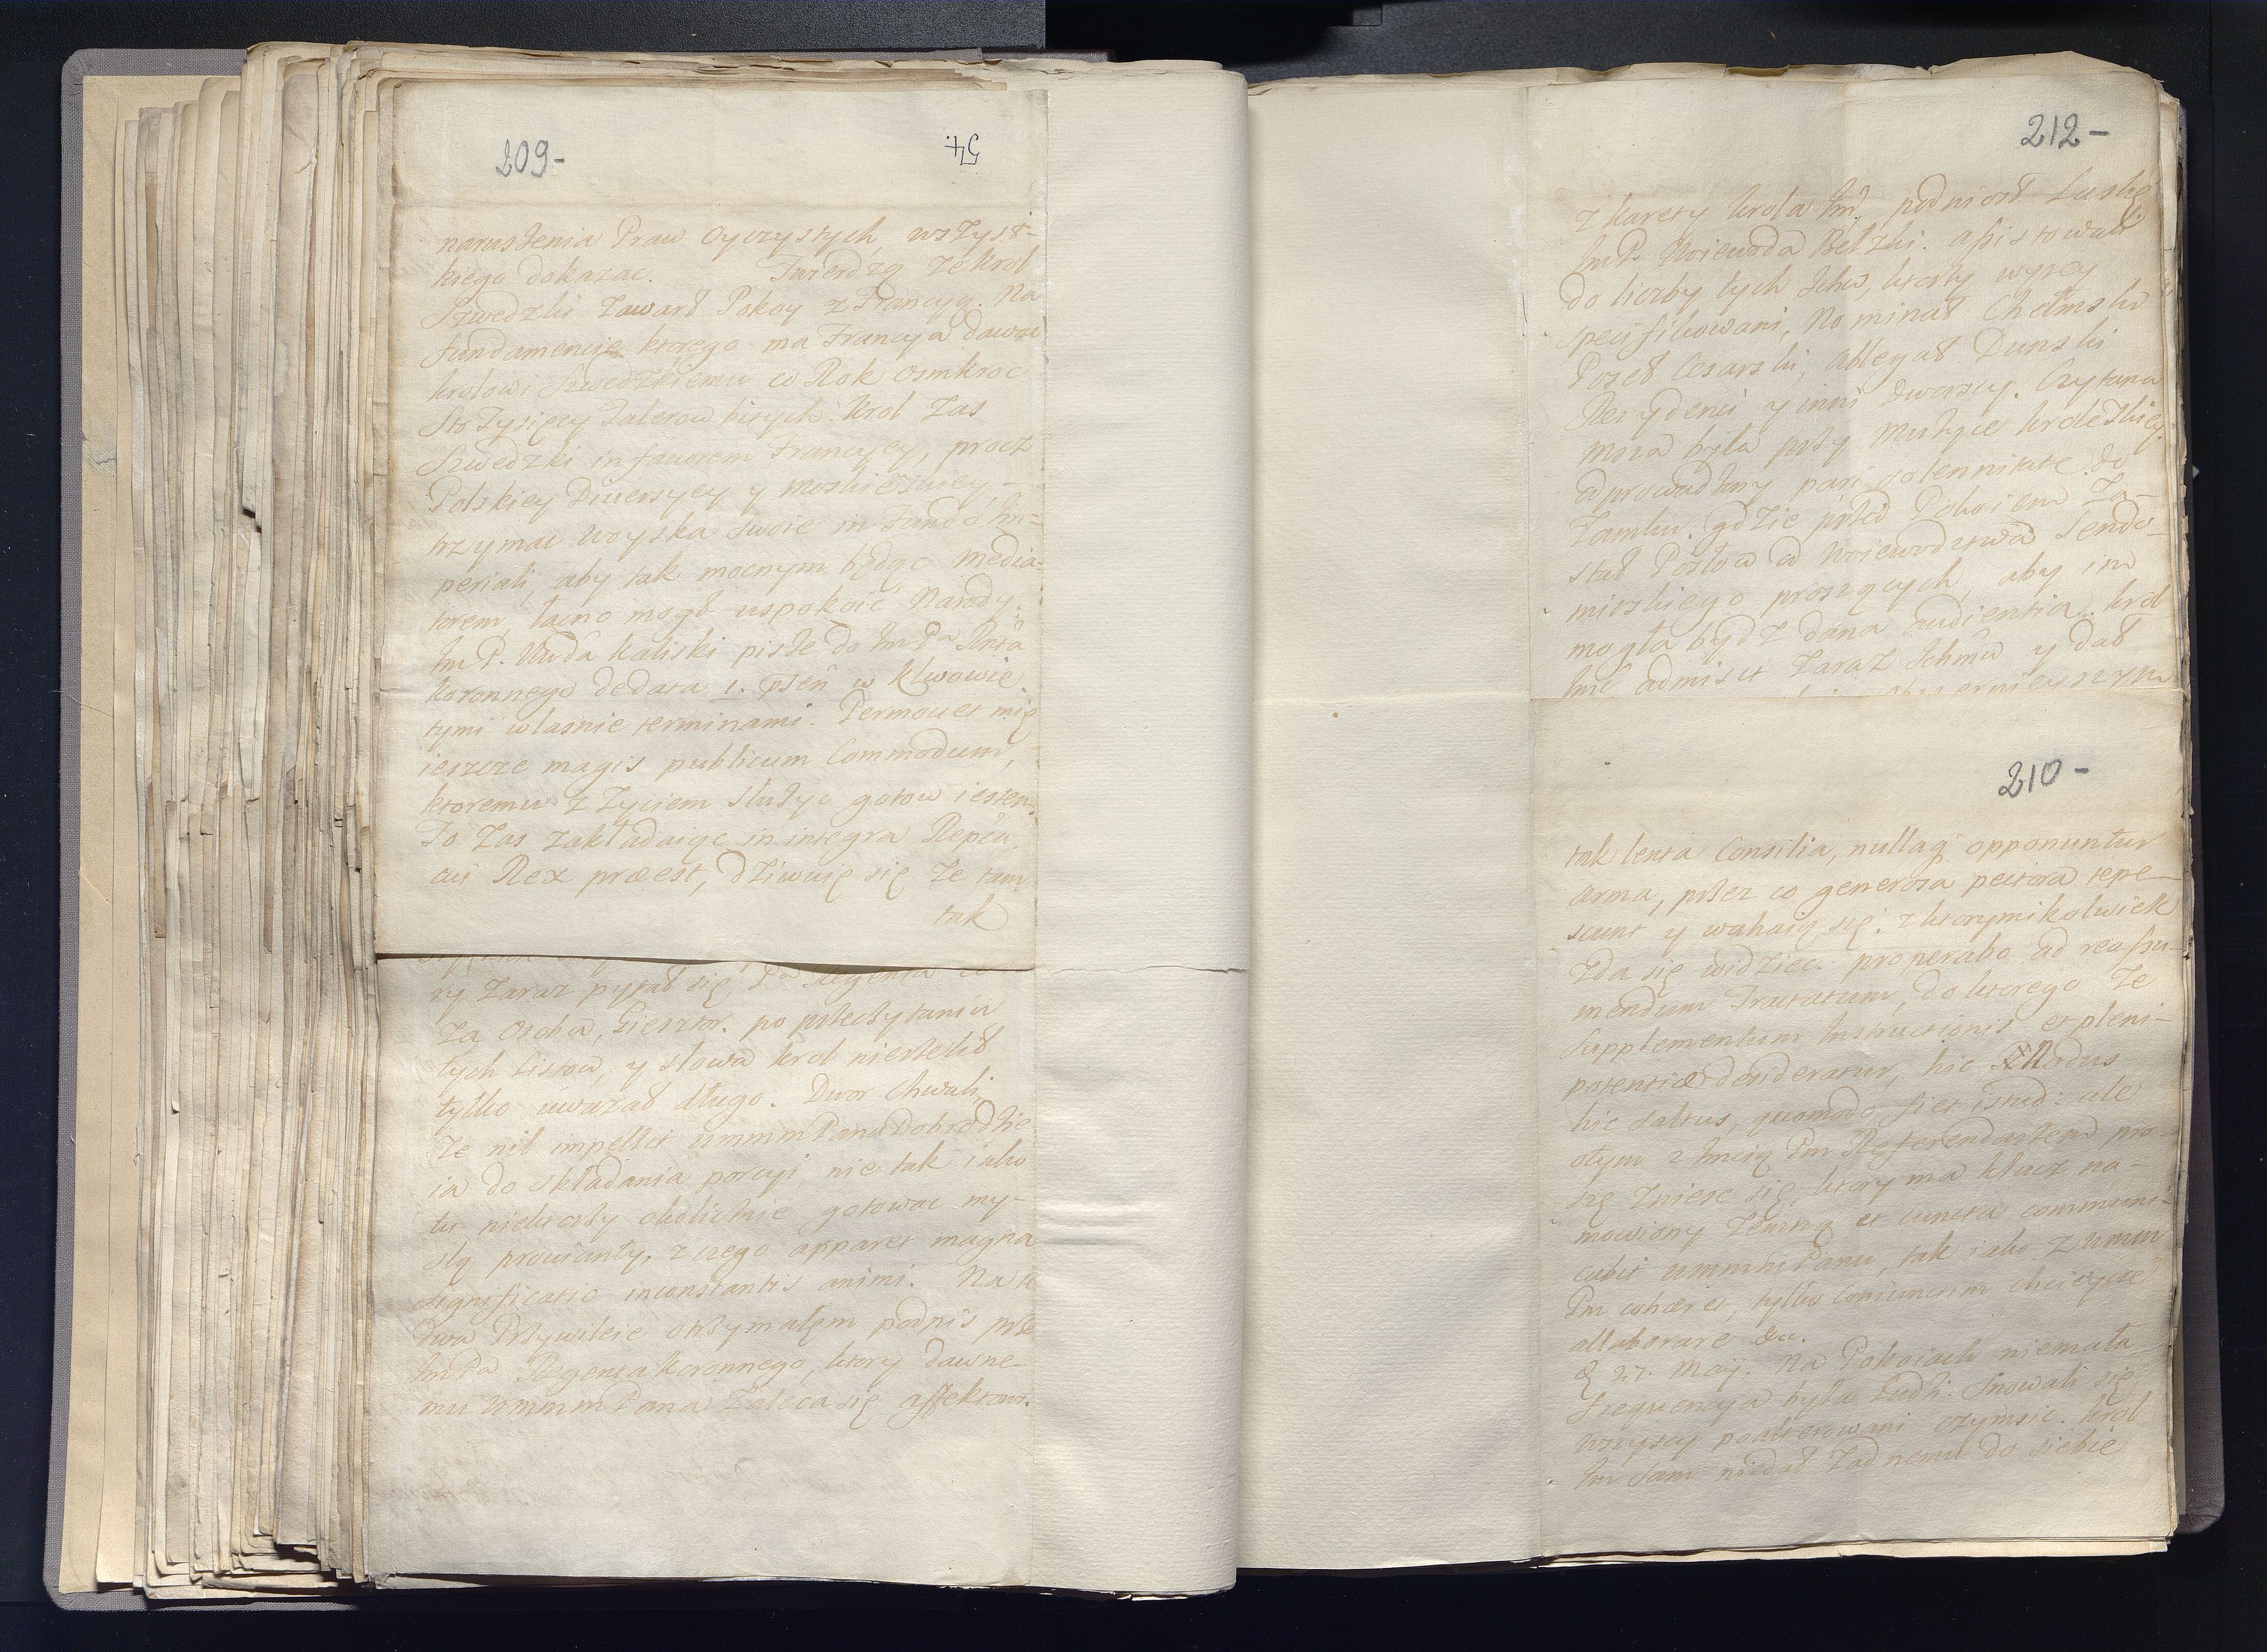 209-
54.
narusżenia Praw Oyczystych, wszyst-
kiego dokazac. Twierdzą że krol
Szwedzki zawarł Pokoy z Francyą. Na
fundamencie ktorego ma Francya dawac
krolowi Szwedzkiemu co Rok osmkroc
Sto Tysięcy Talerow bitych. krol zas
Szwedzki in favorem Francyey, procz
Polskiey Diwersyey y Moskiewskiey
trzymac woyska swoie in Fundo Im=
periali, aby tak mocnym będąc media=
torem, łacno mogł uspokoić Narody.
ImP. Wda kaliski pisze do ImPa
koronnego de data 1. w klwowie
tymi własnie terminami. Permovet mię
ieszcze magis publicum Commodum,
ktoremu z życiem służyc gotow iestem
To zas zakładaiąc in integra Repca,
cui Rex præest, dziwuię się że tam
tak
ry zaraz pytał się Pa Regenta co
za osoba, Giesztor. po przeczytaniu
tych listow, y słowa krol nierzekł
tylko uważał długo. Dwor chwali,
że nil impellit WMMMPana Dobrodzie
ia do składania porcyi, nie tak iako
tu niektorzy okolicznie gotowac my-
slą prowianty, z czego apparet magna
significatio inconstantis animi. Na te
dwa Przywileie otrzymałem podpis prze
ImPa Regenta koronnego, ktory dawne
mu WMMMPana zaleca się affektowi.
212-
z karety krola Im, podniosł Laskę
ImP. Woiewoda Bełzki. assistowali
do liczby tych Ichm, ktorzy wyzey
specifikowani, Nominat Chełmski
Poseł Cesarski, ablegat Dunski
Residenci y inni dworscy. Czytana
msza była przy Muzyce krolewskiey.
odprowadzony pari solennitate do
Zamku. gdzie przed Pokoiem za-
stał Posłow od Woiewodztwa Sendo-
mirskiego proszących, aby im
mogła bydz dana audientia. krol
Imć admisit zaraz Ichmw y dał
210-
tak lenta Consilia, nullaq opponuntur
arma, przez co generosa pectora tepe-
scunt y wahaią się. z ktorymikolwiek
zda się widziec. properabo ad reassu-
mendum Tractatum, do ktorego że
supplementum Instructionis et pleni-
potentiæ desideratur, hic Nodus
hic saltus, quomodo fiet istud: ale
otym z Imcią Pm Referendarzem pro-
szę zniesc się, ktory ma klucz na-
mowiony zemną et cuncta communi-
cabit WMMMPanu, tak iako z WMM
Pm cohæret, tylko coniunctim chcieycie
allaborare &c.
27. Maij. Na Pokoiach niemała
frequencya była Ludzi. Snowali się
wszyscy poalterowani czymsic. krol
Im sam niedał żadnemu do siebie